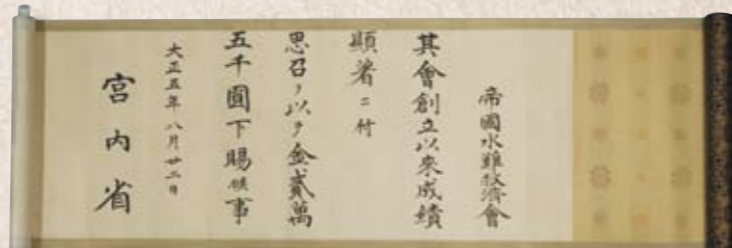 帝國水難救濟會
其會創立以來成績
顕著ニ付
思召ヲ以テ金貳萬
五千圓下賜候事
大正五年八月廿二日
宮内省